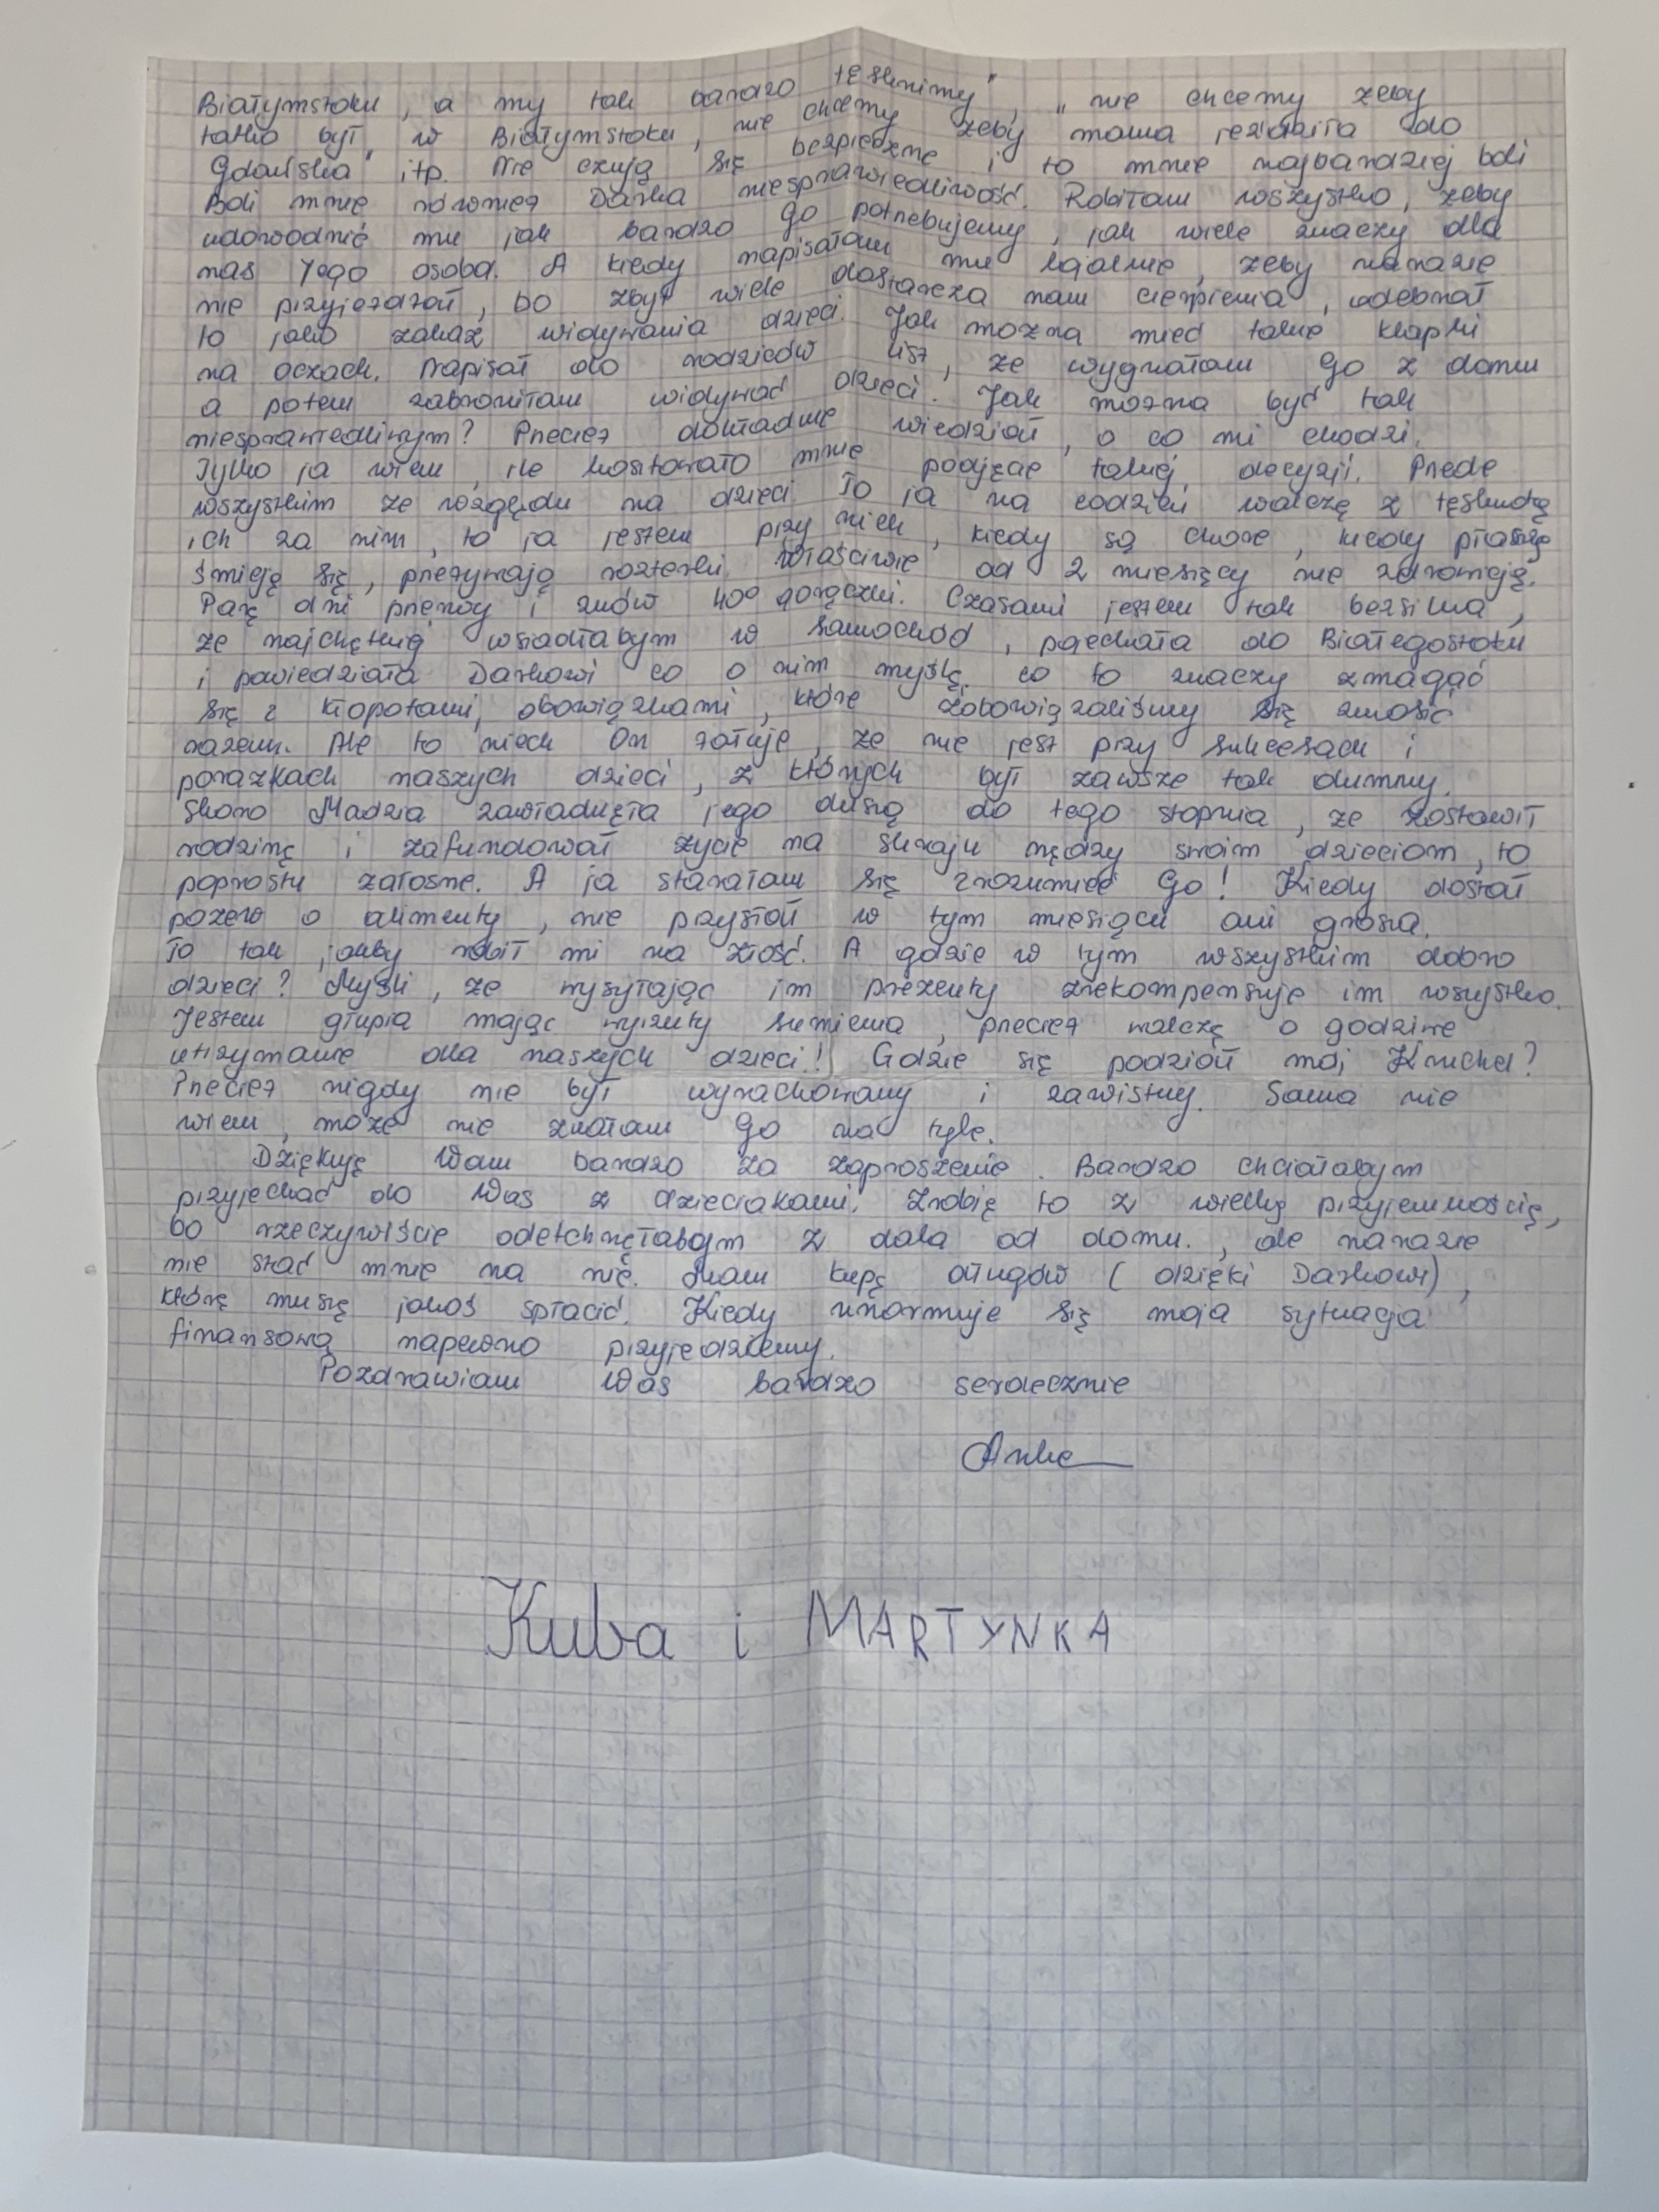 Białymstoku, a my tak bardzo tęsknimy", "nie chcemy żeby
tatko był w Białymstoku, nie chcemy żeby mama jeździła do
Gdańska" itp. Nie czują się bezpieczne i to mnie najbardziej boli
Boli mnie również Darka niesprawiedliwość. Robiłam wszystko, żeby
udowodnić mu jak bardzo go potrzebujemy, jak wiele znaczy dla
nas Jego osoba. A kiedy napisałam mu lojalnie, żeby narazie
nie przyjeżdżał, bo zbyt wiele dostarcza nam cierpienia, odebrał
to jako zakaz widywania dzieci. Jak można mieć takie klapki
na oczach. Napisał do rodziców list, że wygnałam go z domu
a potem zabroniłam widywać dzieci. Jak można być tak
niesprawiedliwym? Przecież dokładnie wiedział, o co mi chodzi.
Tylko ja wiem, ile kosztowało mnie podjęcie takiej decyzji. Przede
wszystkim ze względu na dzieci. To ja na codzień walczę z tęsknotą
ich za nim, to ja jestem przy nich, kiedy są chore, kiedy płaczą
śmieją się, przeżywają rozterki. Właściwie od 2 miesięcy nie zdrowieją.
Parę dni przerwy i znów 40° gorączki. Czasami jestem tak bezsilna,
że najchętniej wsiadłabym w samochód, pojechała do Białegostoku
i powiedziała Darkowi co o nim myślę, co to znaczy zmagać
się z kłopotami, obowiązkami, które zobowiązaliśmy się znosić
razem. Ale to niech On żałuje, że nie jest przy sukcesach i
porażkach naszych dzieci, z których był zawsze tak dumny.
Skoro Madzia zawładnęła jego duszą do tego stopnia, że zostawił
rodzinę i zafundował życie na skraju nędzy swoim dzieciom, to
poprostu żałosne. A ja starałam się zrozumieć Go! Kiedy dostał
pozew o alimenty, nie przysłał w tym miesiącu ani grosza.
To tak, jakby robił mi na złość. A gdzie w tym wszystkim dobro
dzieci? Myśli, że wysyłając im prezenty zrekompensuje im wszystko.
Jestem głupia mając wyrzuty sumienia, przecież walczę o godziwe
utrzymanie dla naszych dzieci! Gdzie się podział mój Kruchel?
Przecież nigdy nie był wyrachowany i zawistny. Sama nie
wiem, może nie znałam Go na tyle.
Dziękuję Wam bardzo za zaproszenie. Bardzo chciałabym
przyjechać do Was z dzieciakami. Zrobię to z wielką przyjemnością,
bo rzeczywiście odetchnęłabym z dala od domu., ale narazie
nie stać mnie na nic. Mam kupę długów (dzięki Darkowi),
które muszę jakoś spłacić. Kiedy unormuje się moja sytuacja
finansowa napewno przyjedziemy.
Pozdrawiam Was bardzo serdecznie
Anka
Kuba i MARTYNKA